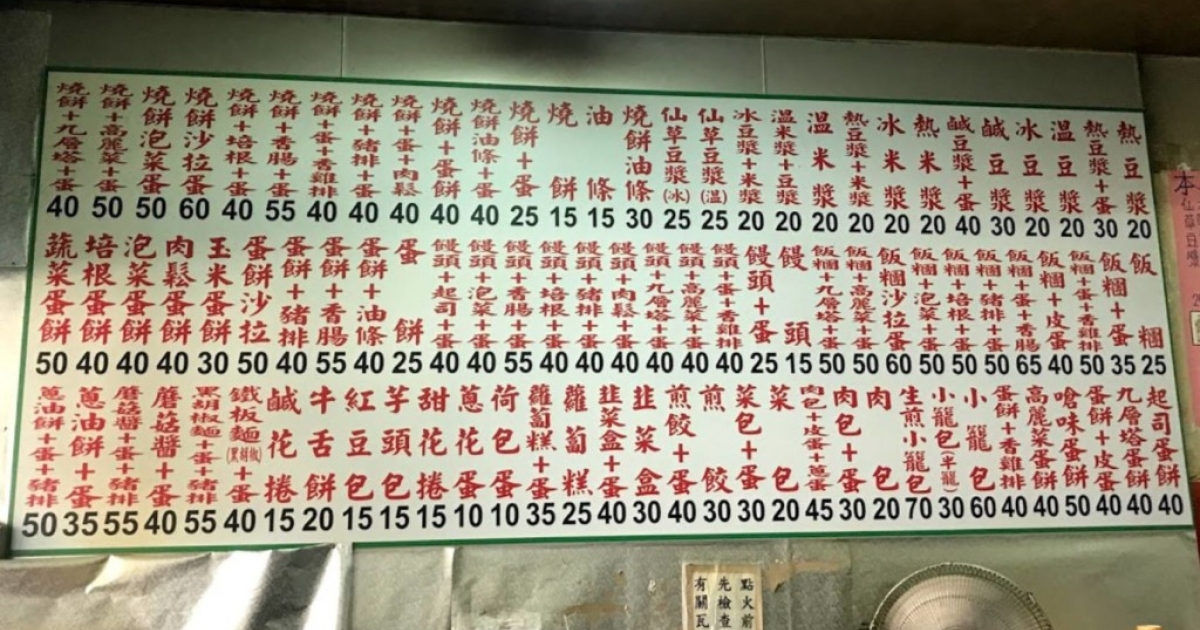 熱豆漿 20
熱豆漿+蛋 30
溫豆漿 20
冰豆漿 20
鹹豆漿 30
鹹豆漿+蛋 40
熱米漿 20
冰米漿 20
熱豆漿+米漿 20
溫米漿 20
溫米漿+豆漿 20
冰豆漿+米漿 20
仙草豆漿(溫) 25
仙草豆漿(冰) 25
燒餅油條 30
油條 15
燒餅 15
燒餅+蛋 25
燒餅油條+蛋 40
燒餅+蛋餅 40
燒餅+蛋+肉鬆 40
燒餅+豬排+蛋 40
燒餅+蛋+香雞排 40
燒餅+香腸+蛋 55
燒餅+培根+蛋 40
燒餅沙拉蛋 60
燒餅泡菜蛋 50
燒餅+高麗菜+蛋 50
燒餅+九層塔+蛋 40
飯糰 25
飯糰+蛋 35
飯糰+蛋+香雞排 50
飯糰+皮蛋 40
飯糰+蛋+香腸 65
飯糰+豬排+蛋 50
飯糰+培根+蛋 50
飯糰+泡菜+蛋 50
飯糰沙拉蛋 60
飯糰+高麗菜+蛋 50
飯糰+九層塔+蛋 50
饅頭 15
饅頭+蛋 25
饅頭+蛋+香雞排 40
饅頭+高麗菜+蛋 40
饅頭+九層塔+蛋 40
饅頭+肉鬆+蛋 40
饅頭+豬排+蛋 40
饅頭+培根+蛋 40
饅頭+香腸+蛋 55
饅頭+泡菜+蛋 40
饅頭+起司+蛋 40
蛋餅 25
蛋餅+油條 40
蛋餅+香腸 55
蛋餅+豬排 40
蛋餅沙拉 50
玉米蛋餅 30
肉鬆蛋餅 40
泡菜蛋餅 40
培根蛋餅 40
蔬菜蛋餅 50
起司蛋餅 40
九層塔蛋餅 40
蛋餅+皮蛋 40
嗆味蛋餅 50
高麗菜蛋餅 40
蛋餅+香雞排 40
小籠包 60
小籠包(半籠) 30
生煎小籠包 70
肉包 20
肉包+蛋 30
肉包+皮蛋+蔥蛋 45
菜包 20
菜包+蛋 30
煎餃 30
煎餃+蛋 40
韭菜盒 30
韭菜盒+蛋 40
蘿蔔糕 25
蘿蔔糕+蛋 35
荷包蛋 10
蔥花蛋 10
甜花捲 15
芋頭包 15
紅豆包 15
牛舌餅 20
鹹花捲 15
鐵板麵+蛋 40
黑胡椒麵+蛋+豬排 55
蘑菇醬+蛋 40
蘑菇醬+蛋+豬排 55
蔥油餅+蛋 35
蔥油餅+蛋+豬排 50
點火前
先檢查
有關瓦
本